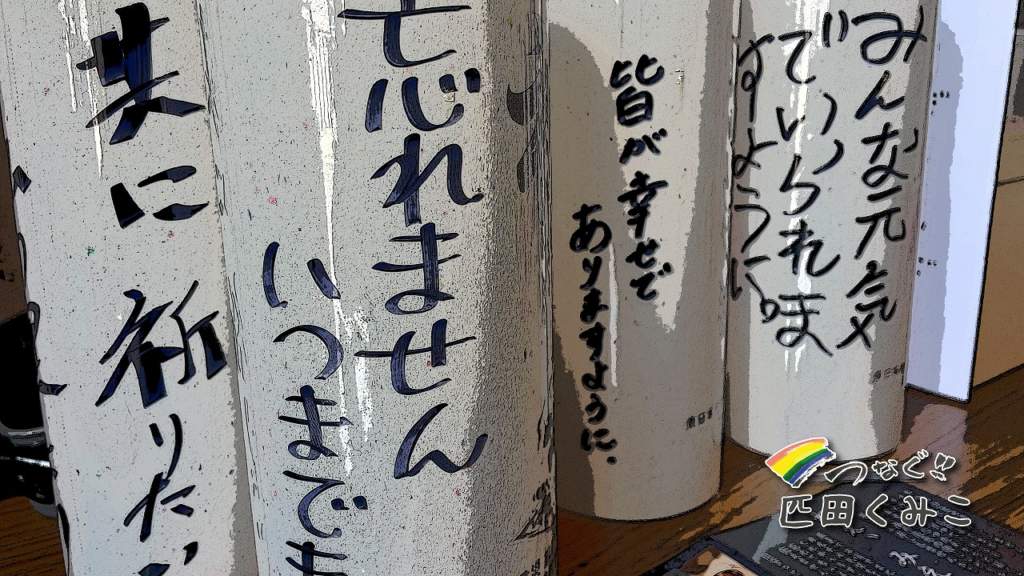 みんな元気
でいられま
すように。
皆が幸せで
ありますように.
忘れません
いつまでも
共に祈りたい
つなぐ!!
匹田くみこ